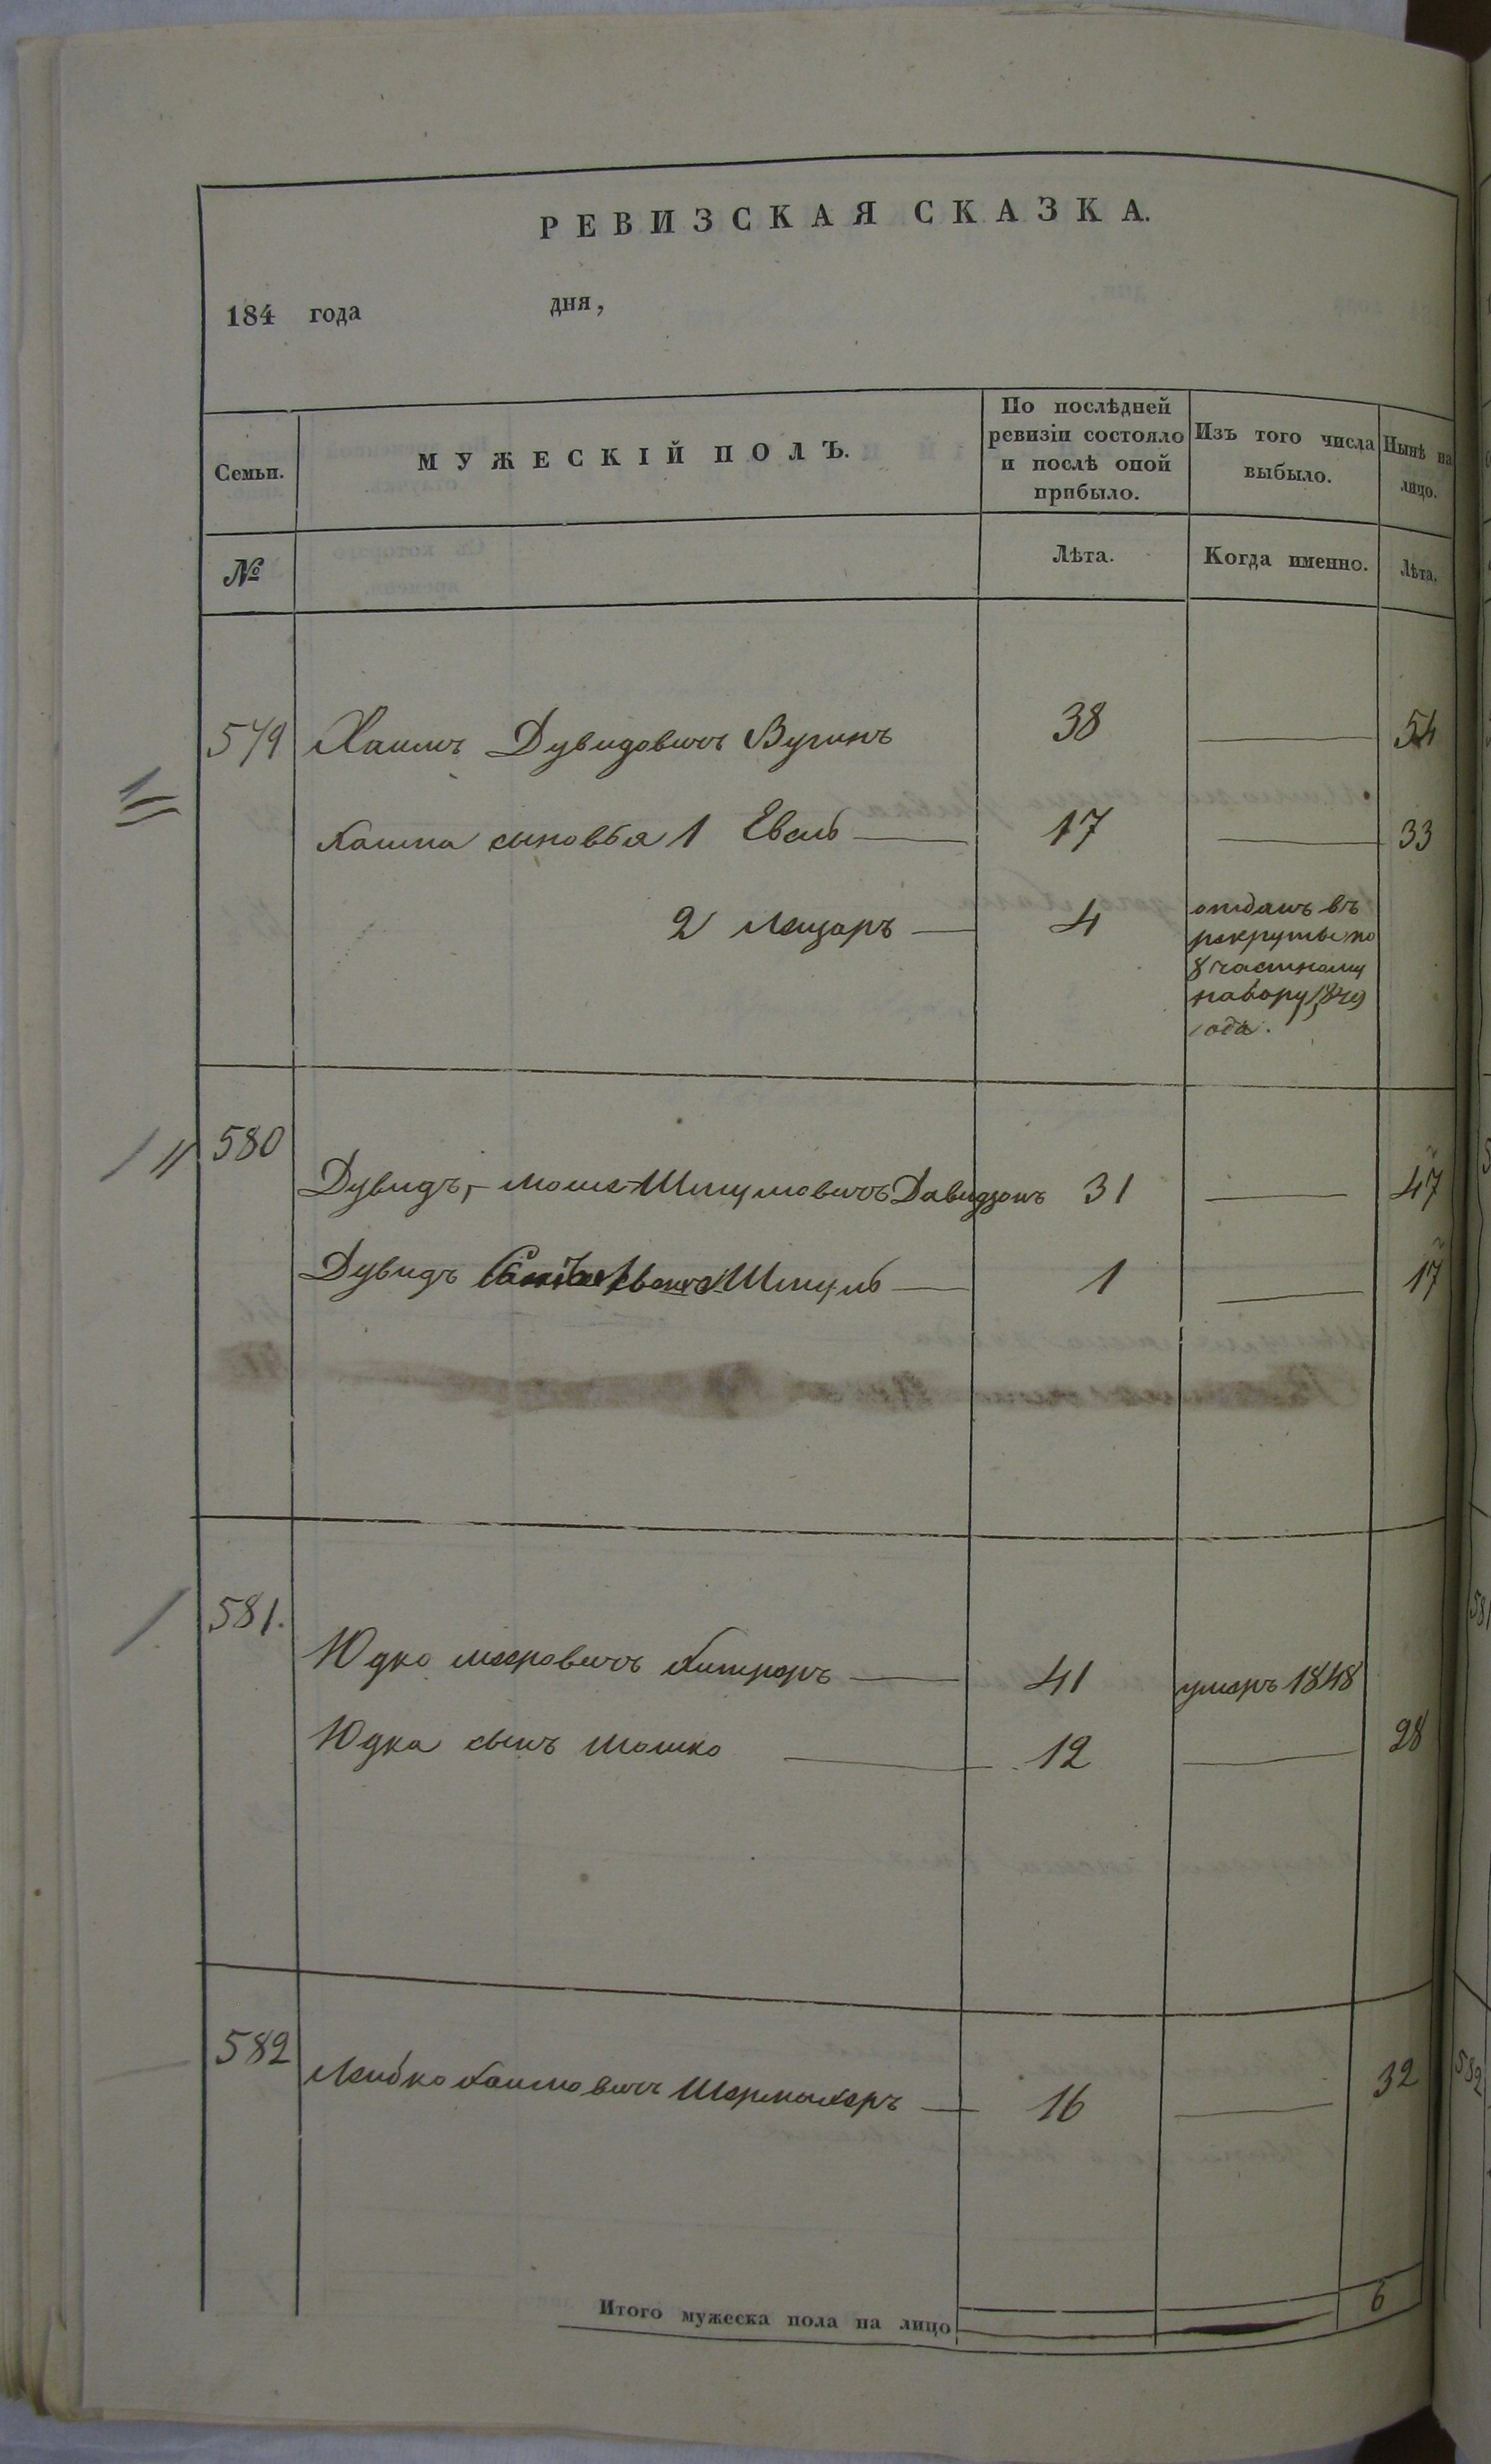 РЕВИЗСКАЯ СКАЗКА.
184 года дня,
Семьи.
МУЖЕСКІЙ ПОЛЪ.
По послѣдней
ревизіи состояло
и послѣ оной
прибыло.
Изъ того числа
выбыло.
Нынѣ на
лицо.
№
Лѣта.
Когда именно.
Лѣта.
579 Хаимъ Дувидовичъ 38 54
Хаима сыновья 1 Евель 17 33
2 Лейзаръ 4
отданъ въ
рекруты по
8 частному
набору 1849
года.
580
Дувидъ, Мошк Шмуловичъ Давидзонъ 31 47
Дувидъ Шмуль 1 17
581.
Юдко Мееровичъ 41 умеръ 1848
Юдка сынъ Мошко 12 28
582
Лейбко Хаимовичъ Шермахеръ 16 32
Итого мужеска пола на лицо 6